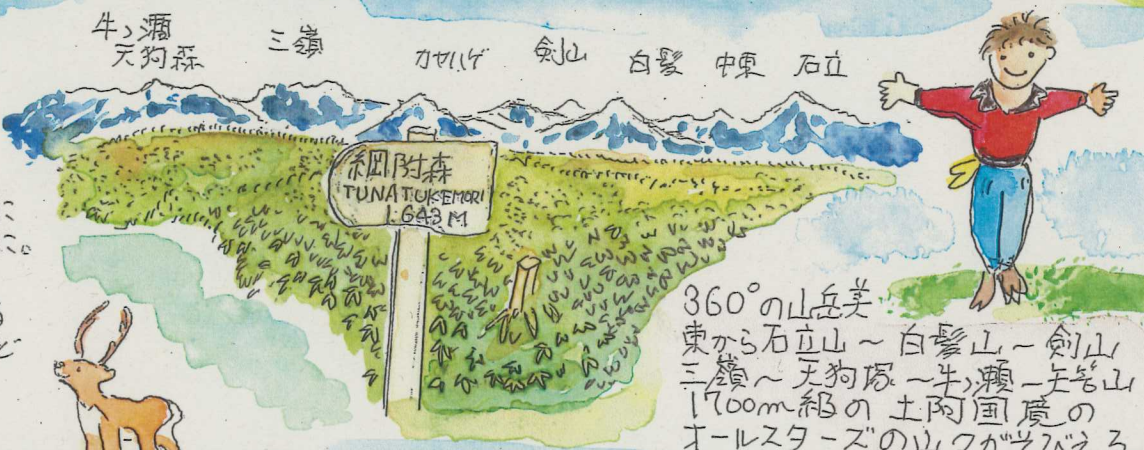 牛ノ瀬
天狗森
三嶺
カヤハゲ
剣山
白髪
中東
石立
綱附森
TUNATUKEMORI
1.643M
360°の山岳美
東から石立山〜白髪山〜剣山
三嶺〜天狗塚〜牛ノ瀬〜矢筈山
1700m級の土阿国境の
オールスターズの山々がそびえる